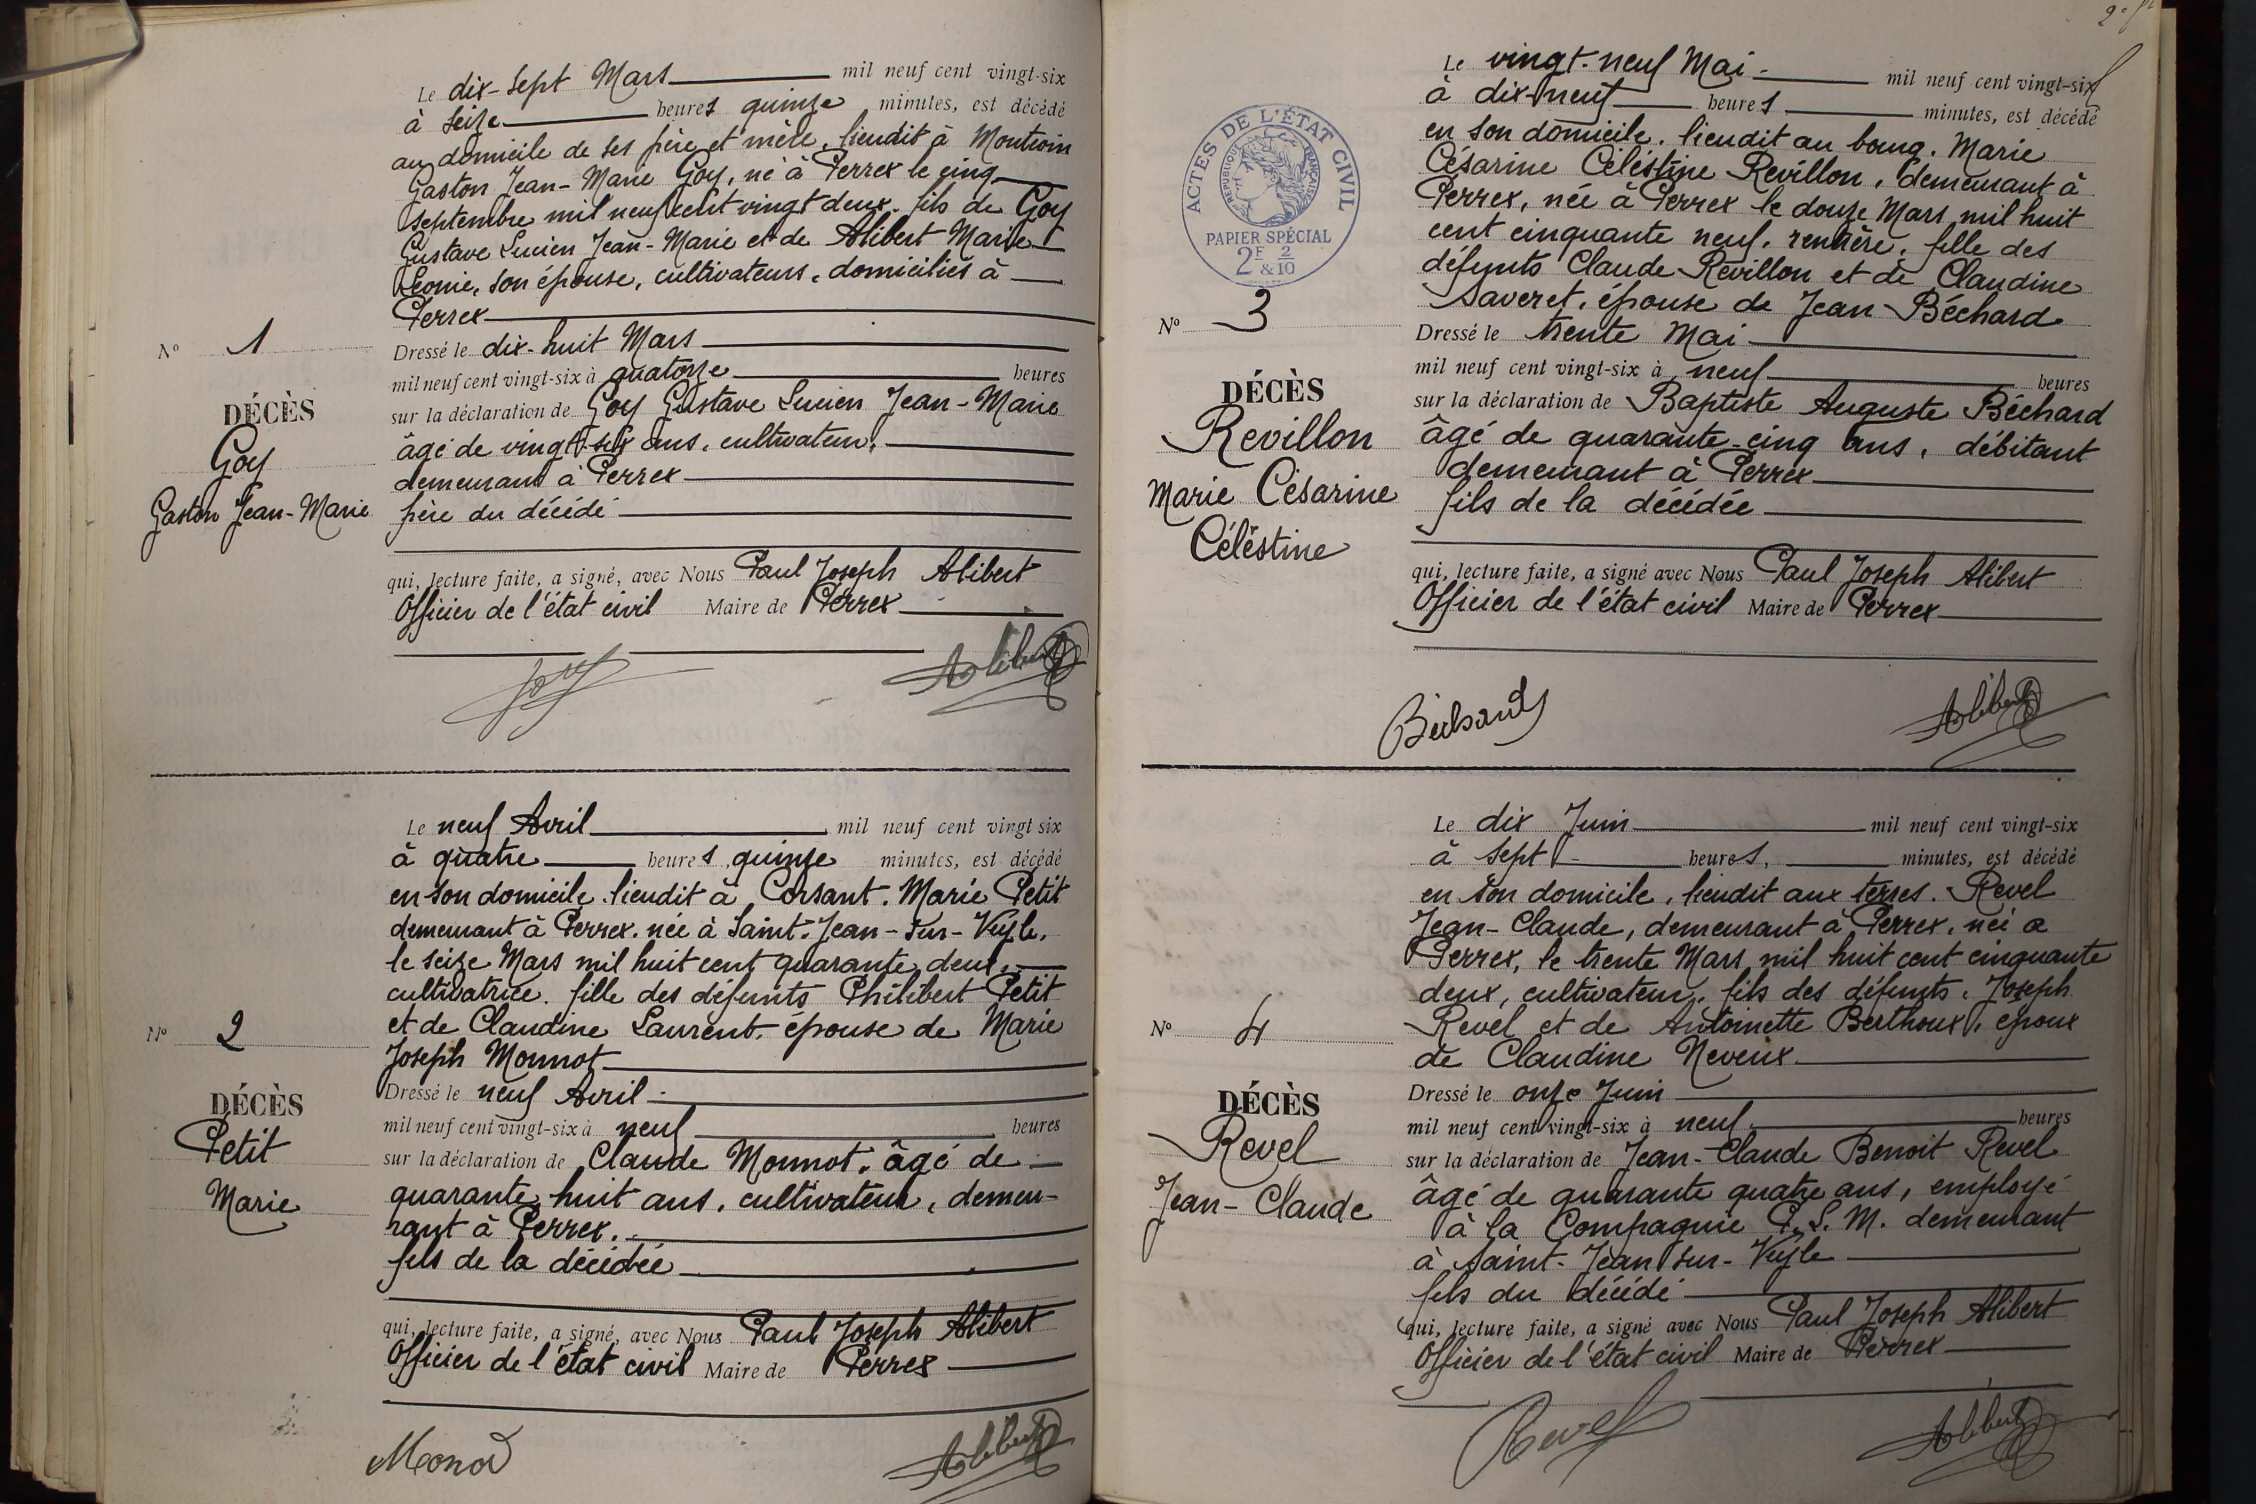 Le dix-sept Mars mil neuf cent vingt-six
à seize heures quinze minutes, est décédé
au domicile de ses père et mère, lieudit à Montroin
Gaston Jean-Marie Goy, né à Perrex le cinq
septembre mil neuf cent vingt deux. fils de Goy
Gustave Lucien Jean-Marie et de Alibert Marie
Léonie, son épouse, cultivateurs, domiciliés à
Perrex
Dressé le dix-huit Mars
mil neuf cent vingt-six à quatorze heures
sur la déclaration de Goy Gustave Lucien Jean-Marie
âgé de vingt-six ans, cultivateur,
demeurant à Perrex
père du décédé
qui, lecture faite, a signé, avec Nous Paul Joseph Alibert
Officier de l'état civil Maire de Perrex
Goy Alibert
N° 1
DÉCÈS
Goy
Gaston Jean-Marie
Le neuf Avril mil neuf cent vingt six
à quatre heures quinze minutes, est décédé
en son domicile. lieudit à Corsant. Marie Petit
demeurant à Perrex. née à Saint-Jean-sur-Veyle,
le seize Mars mil huit cent quarante deux,
cultivatrice. fille des défunts Philibert Petit
et de Claudine Laurent. épouse de Marie
Joseph Monnot
Dressé le neuf Avril
mil neuf cent vingt-six à neuf heures
sur la déclaration de Claude Monnot. âgé de
quarante huit ans, cultivateur, demeu-
rant à Perrex.
fils de la décédée
qui, lecture faite, a signé, avec Nous Paul Joseph Alibert
Officier de l'état civil Maire de Perrex
Alibert
N° 2
DÉCÈS
Petit
Marie
ACTES DE L'ÉTAT CIVIL
RÉPUBLIQUE FRANÇAISE
PAPIER SPÉCIAL
2F & 2/10
Le vingt-neuf Mai mil neuf cent vingt-six
à dix-neuf heures minutes, est décédé
en son domicile, lieudit au bourg. Marie
Césarine Céléstine Revillon, demeurant à
Perrex, née à Perrex le douze Mars mil huit
cent cinquante neuf, rentière, fille des
défunts Claude Revillon et de Claudine
Saveret, épouse de Jean Béchard
Dressé le trente Mai
mil neuf cent vingt-six à neuf heures
sur la déclaration de Baptiste Auguste Béchard
âgé de quarante-cinq ans, débitant
demeurant à Perrex
fils de la décédée
qui, lecture faite, a signé avec Nous Paul Joseph Alibert
Officier de l'état civil Maire de Perrex
Béchard Alibert
N° 3
DÉCÈS
Revillon
Marie Césarine
Céléstine
Le dix Juin mil neuf cent vingt-six
à sept heures, minutes, est décédé
en son domicile, lieudit aux terres. Revel
Jean-Claude, demeurant à Perrex, né à
Perrex, le trente Mars mil huit cent cinquante
deux, cultivateur, fils des défunts, Joseph
Revel et de Antoinette Berthoux, époux
de Claudine Neveux
Dressé le onze Juin
mil neuf cent vingt-six à neuf heures
sur la déclaration de Jean-Claude Benoit Revel
âgé de quarante quatre ans, employé
à la Compagnie P. L. M. demeurant
à Saint-Jean sur-Veyle
fils du décédé
qui, lecture faite, a signé avec Nous Paul Joseph Alibert
Officier de l'état civil Maire de Perrex
Revel Alibert
N° 4
DÉCÈS
Revel
Jean-Claude